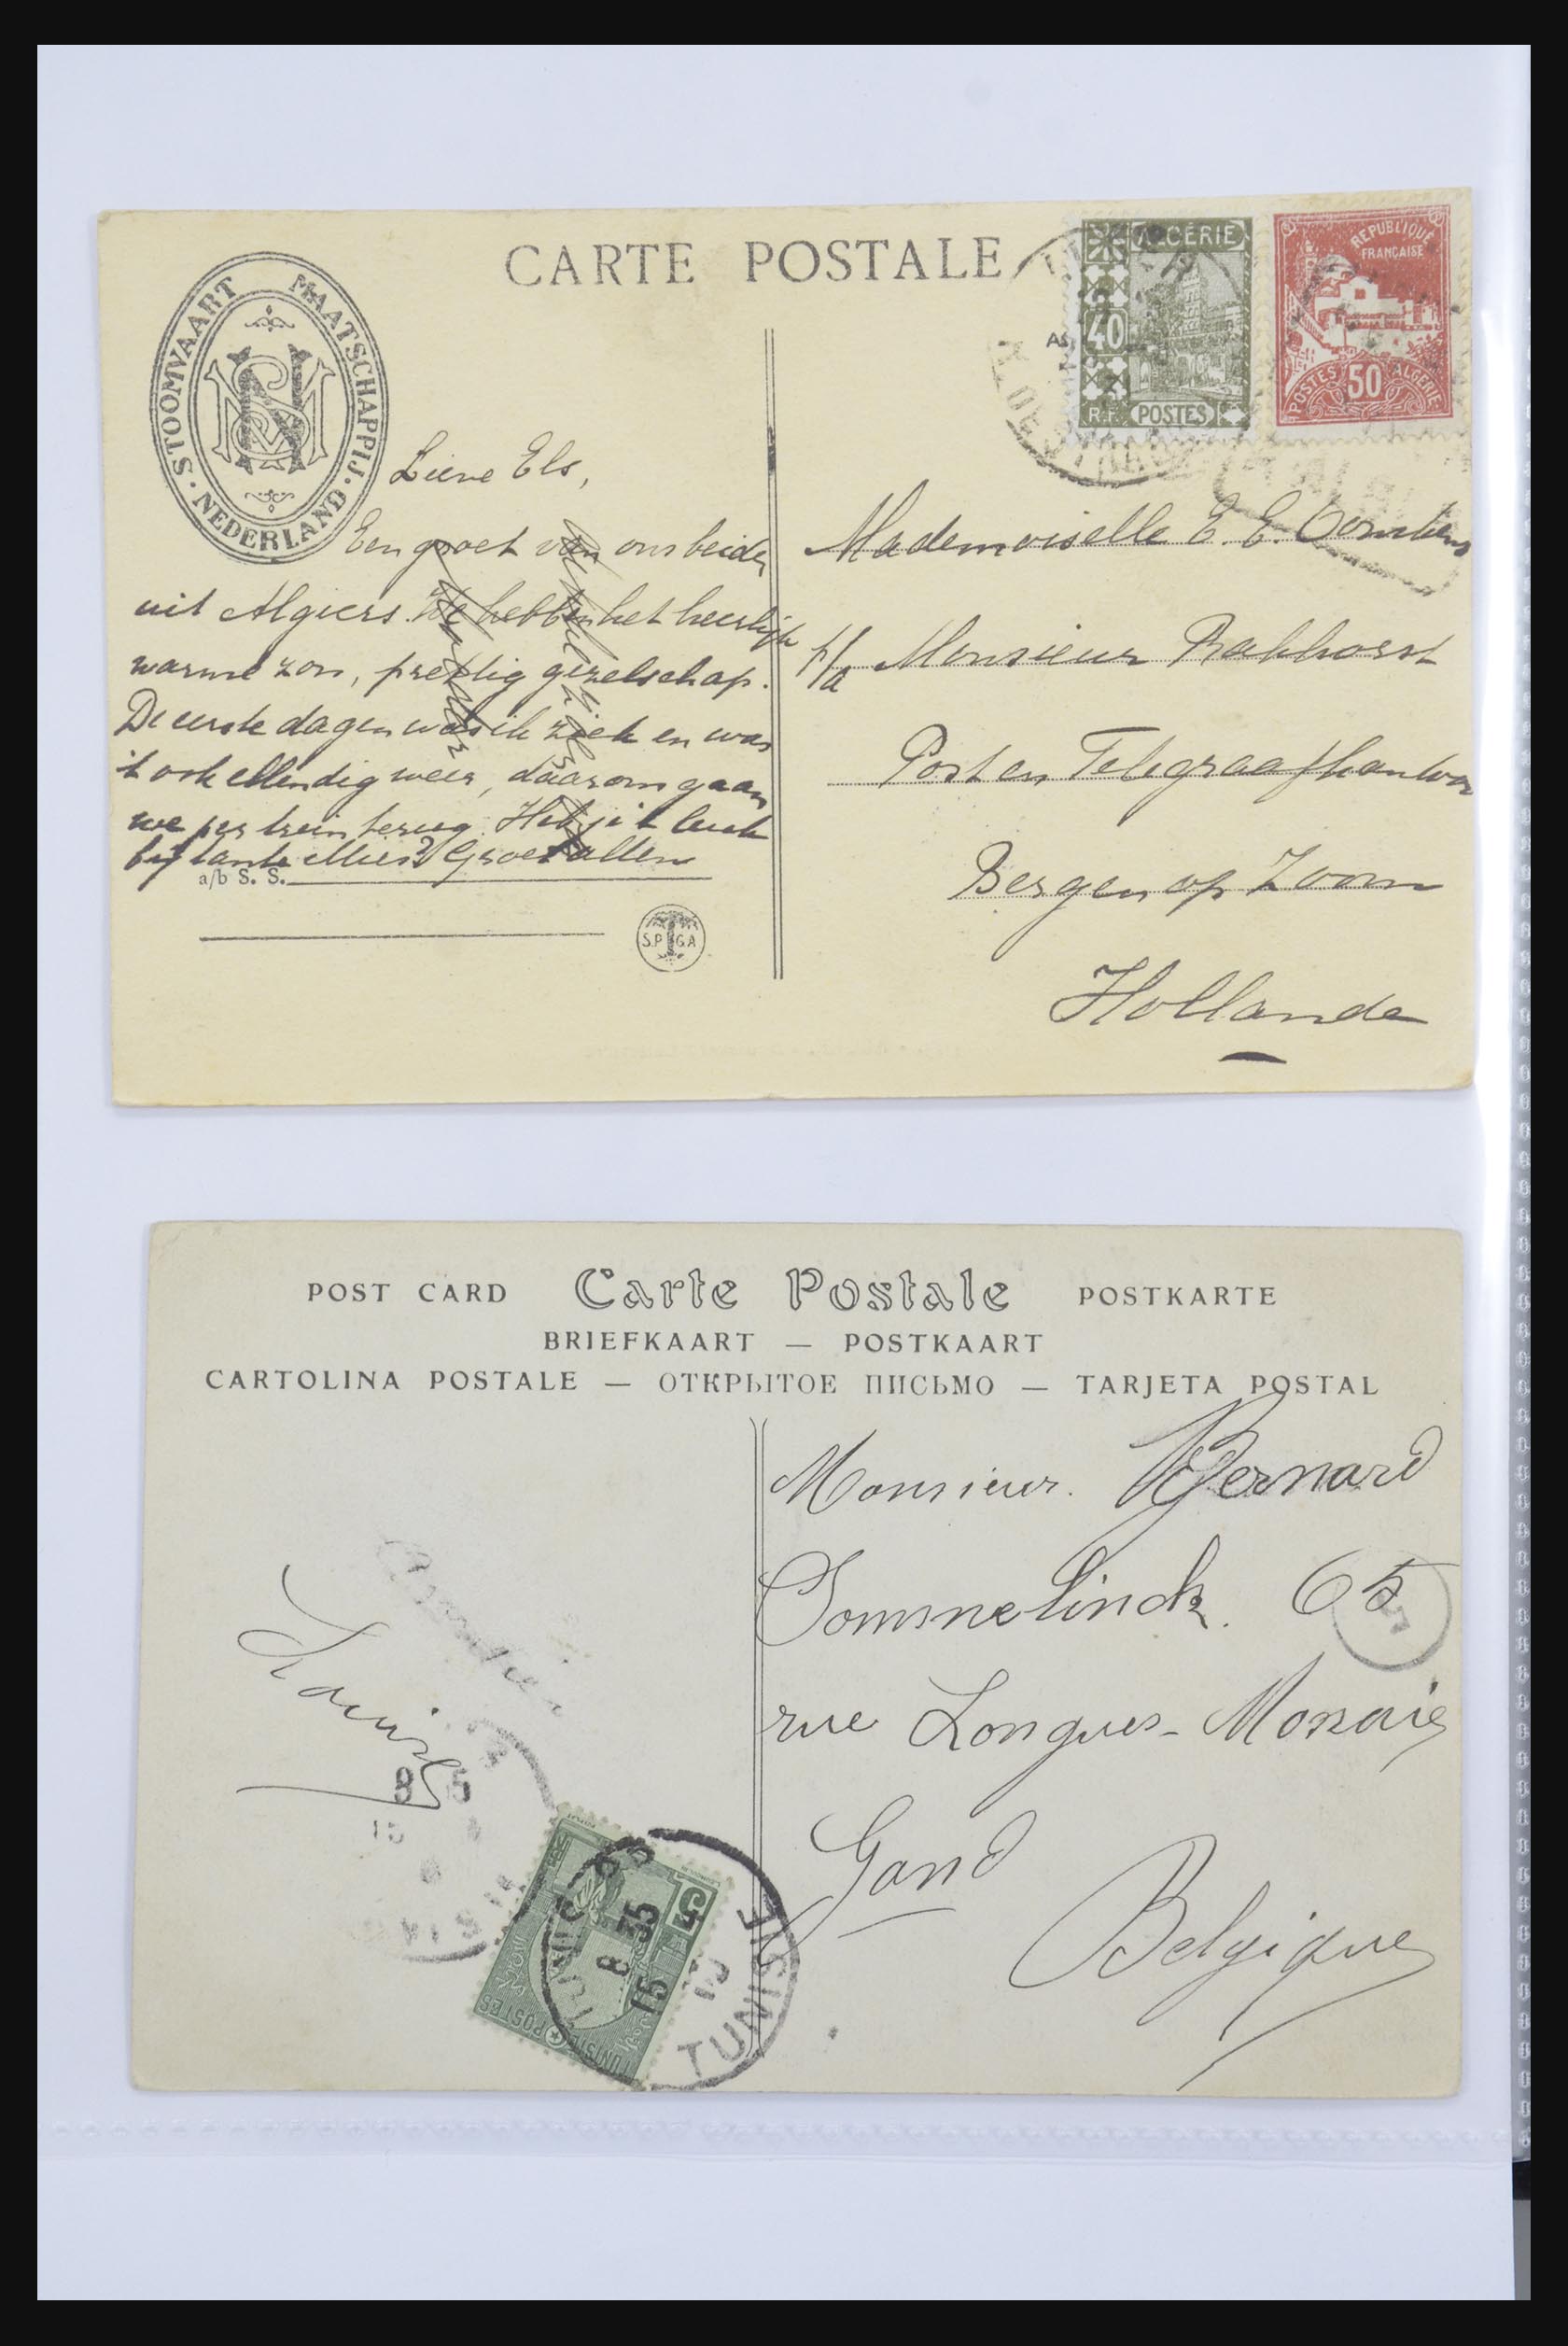 CARTE POSTALE
STOOMVAART MAATSCHAPPIJ · NEDERLAND ·
SMN
ALGÉRIE
40
R.F. POSTES
REPUBLIQUE
FRANÇAISE
50
POSTES ALGERIE
Lieve Els,
Een groet van ons beiden
uit Algiers. We hebben het heerlijk
warme zon, prettig gezelschap.
De eerste dagen was ik ziek en was
't ook ellendig weer, daarom gaan
we per trein terug. Heb je 't leuk
bij tante Mies? Groet allen
a/b S. S.
S.P. G.A
Mademoiselle E. E.
p/a Monsieur Bakhorst
Post en Telegraafkantoor
Bergen op Zoom
Hollande
POST CARD Carte Postale POSTKARTE
BRIEFKAART — POSTKAART
CARTOLINA POSTALE — ОТКРЫТОЕ ПИСЬМО — TARJETA POSTAL
Monsieur Bernard
Commelinck. 65
rue Longues-Monaies
Gand
Belgique
Louise
8 35
15
TUNIS
8 35
15
10
TUNISIE
5
POSTES
TUNISIE